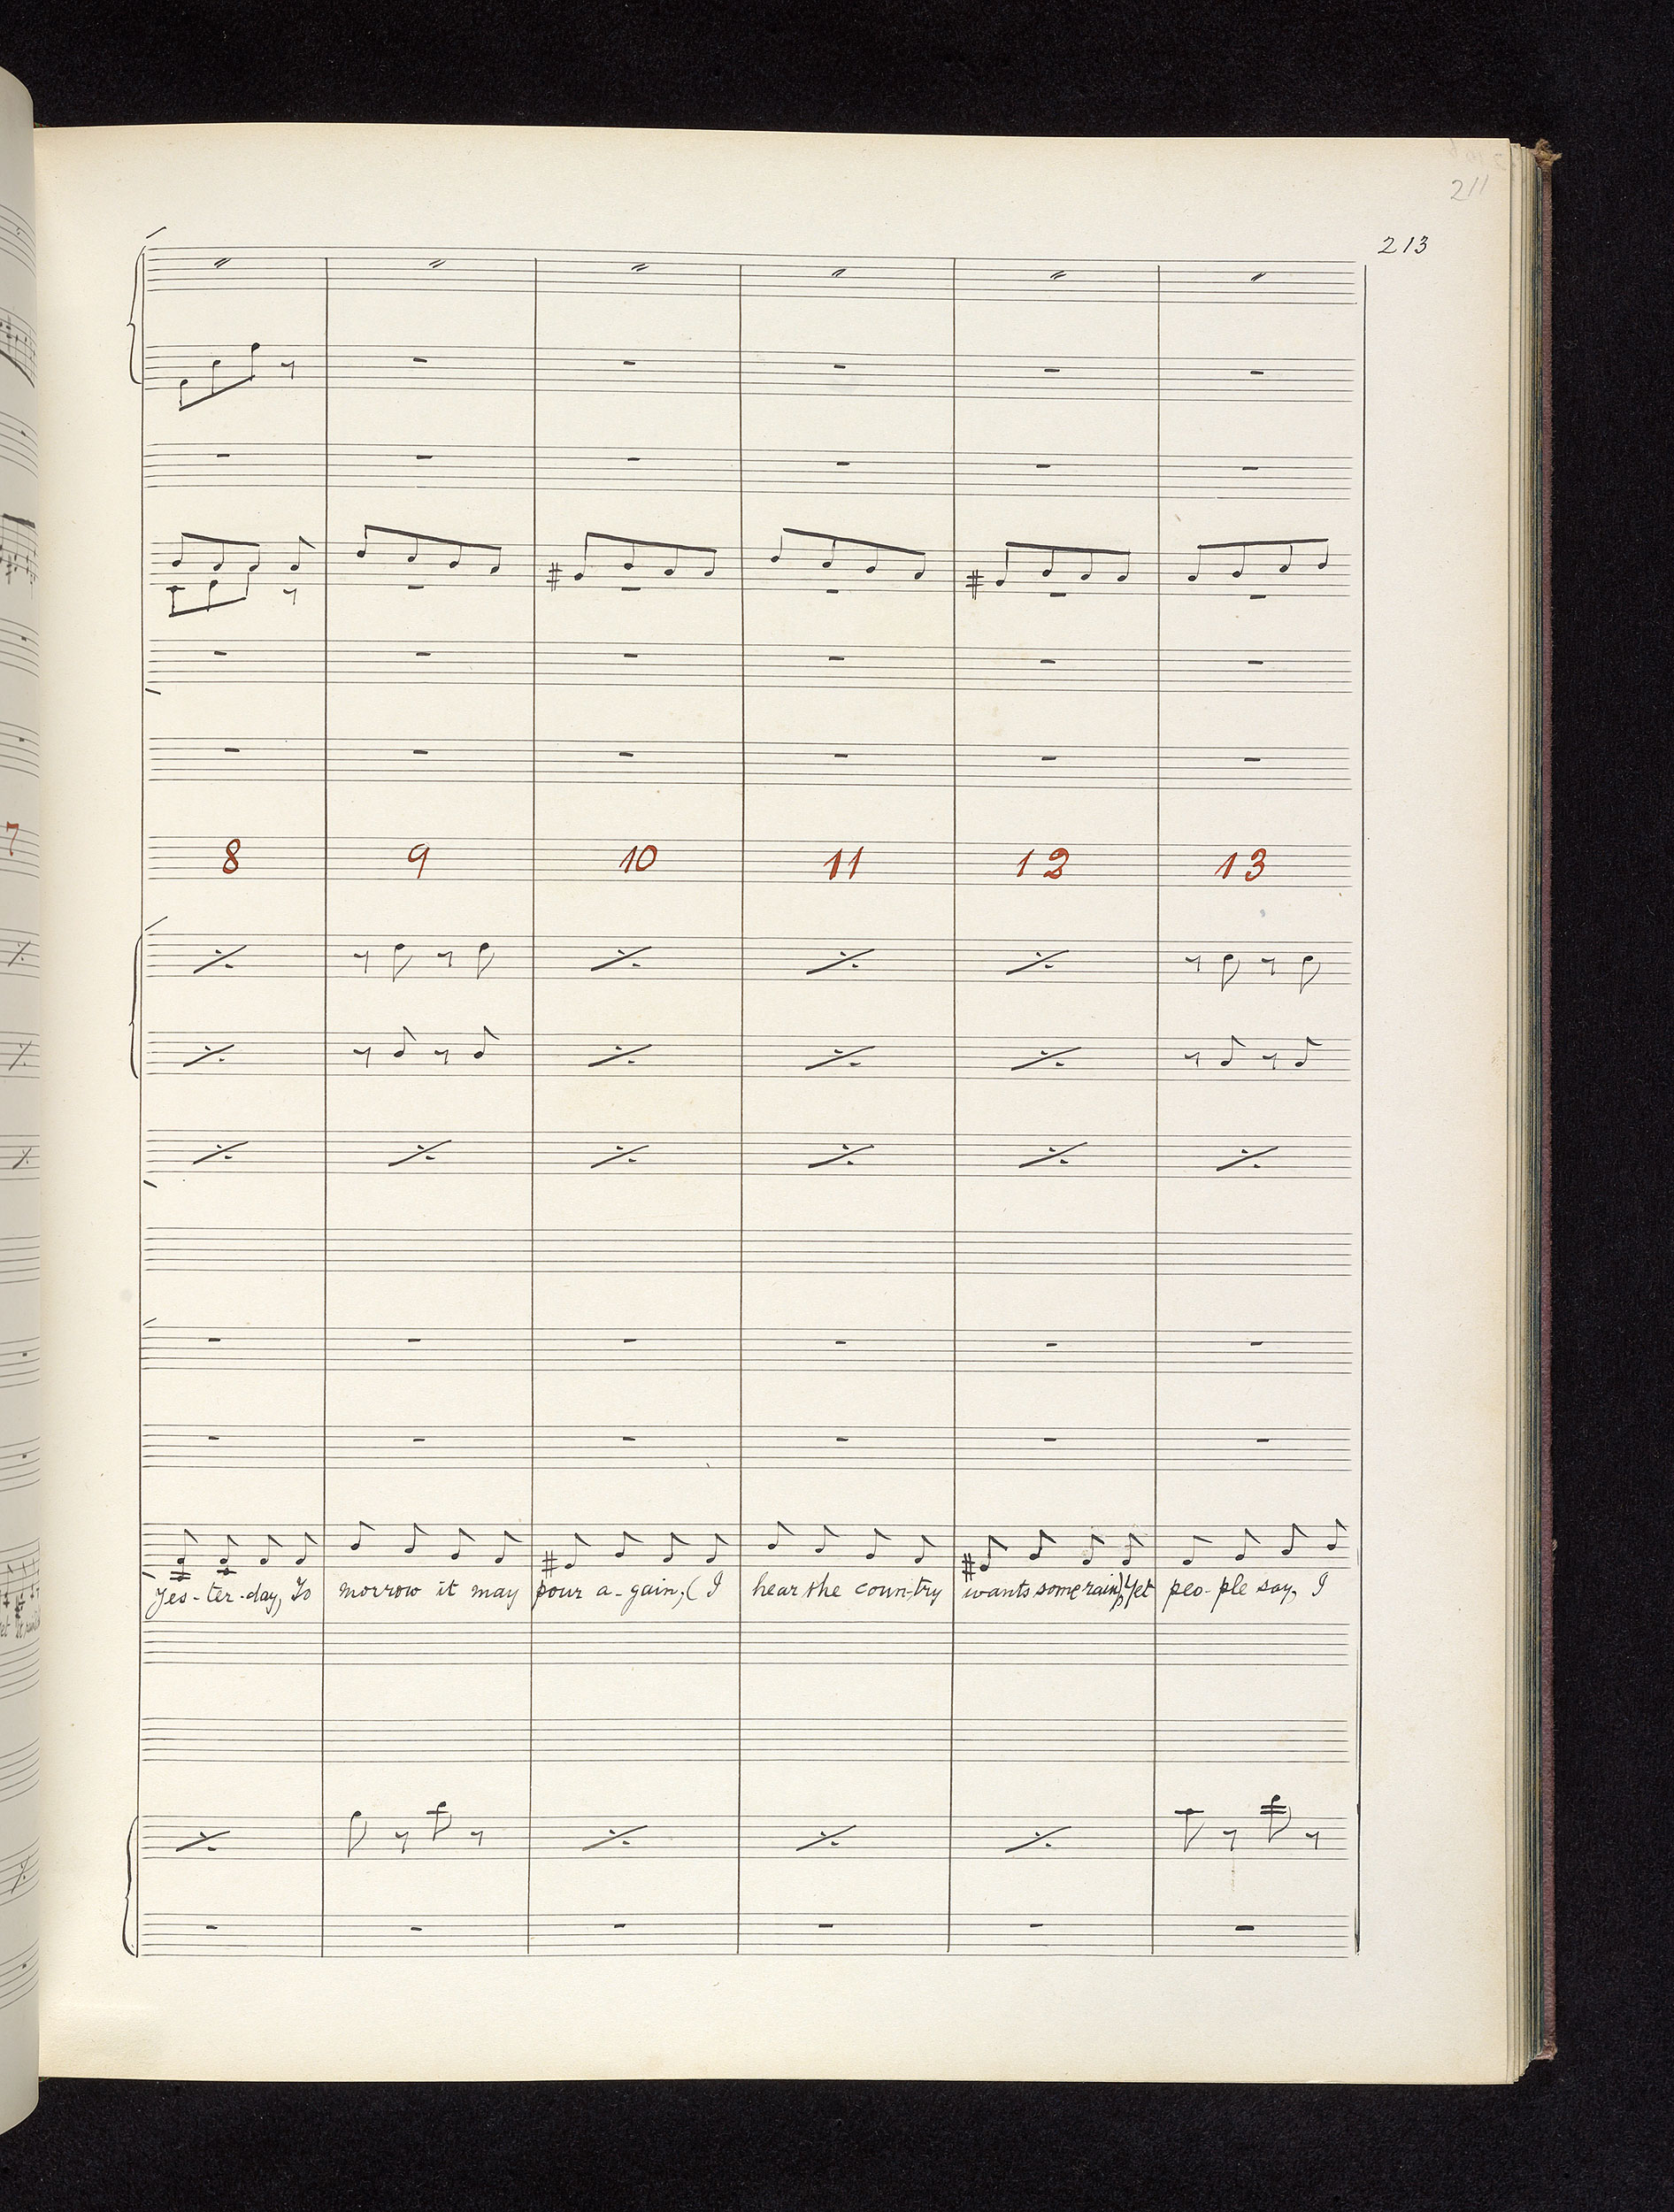 211
213
7
8 9 10 11 12 13
Yes-ter-day, To morrow it may pour a-gain, (I hear the coun-try wants some rain), Yet peo-ple say, I